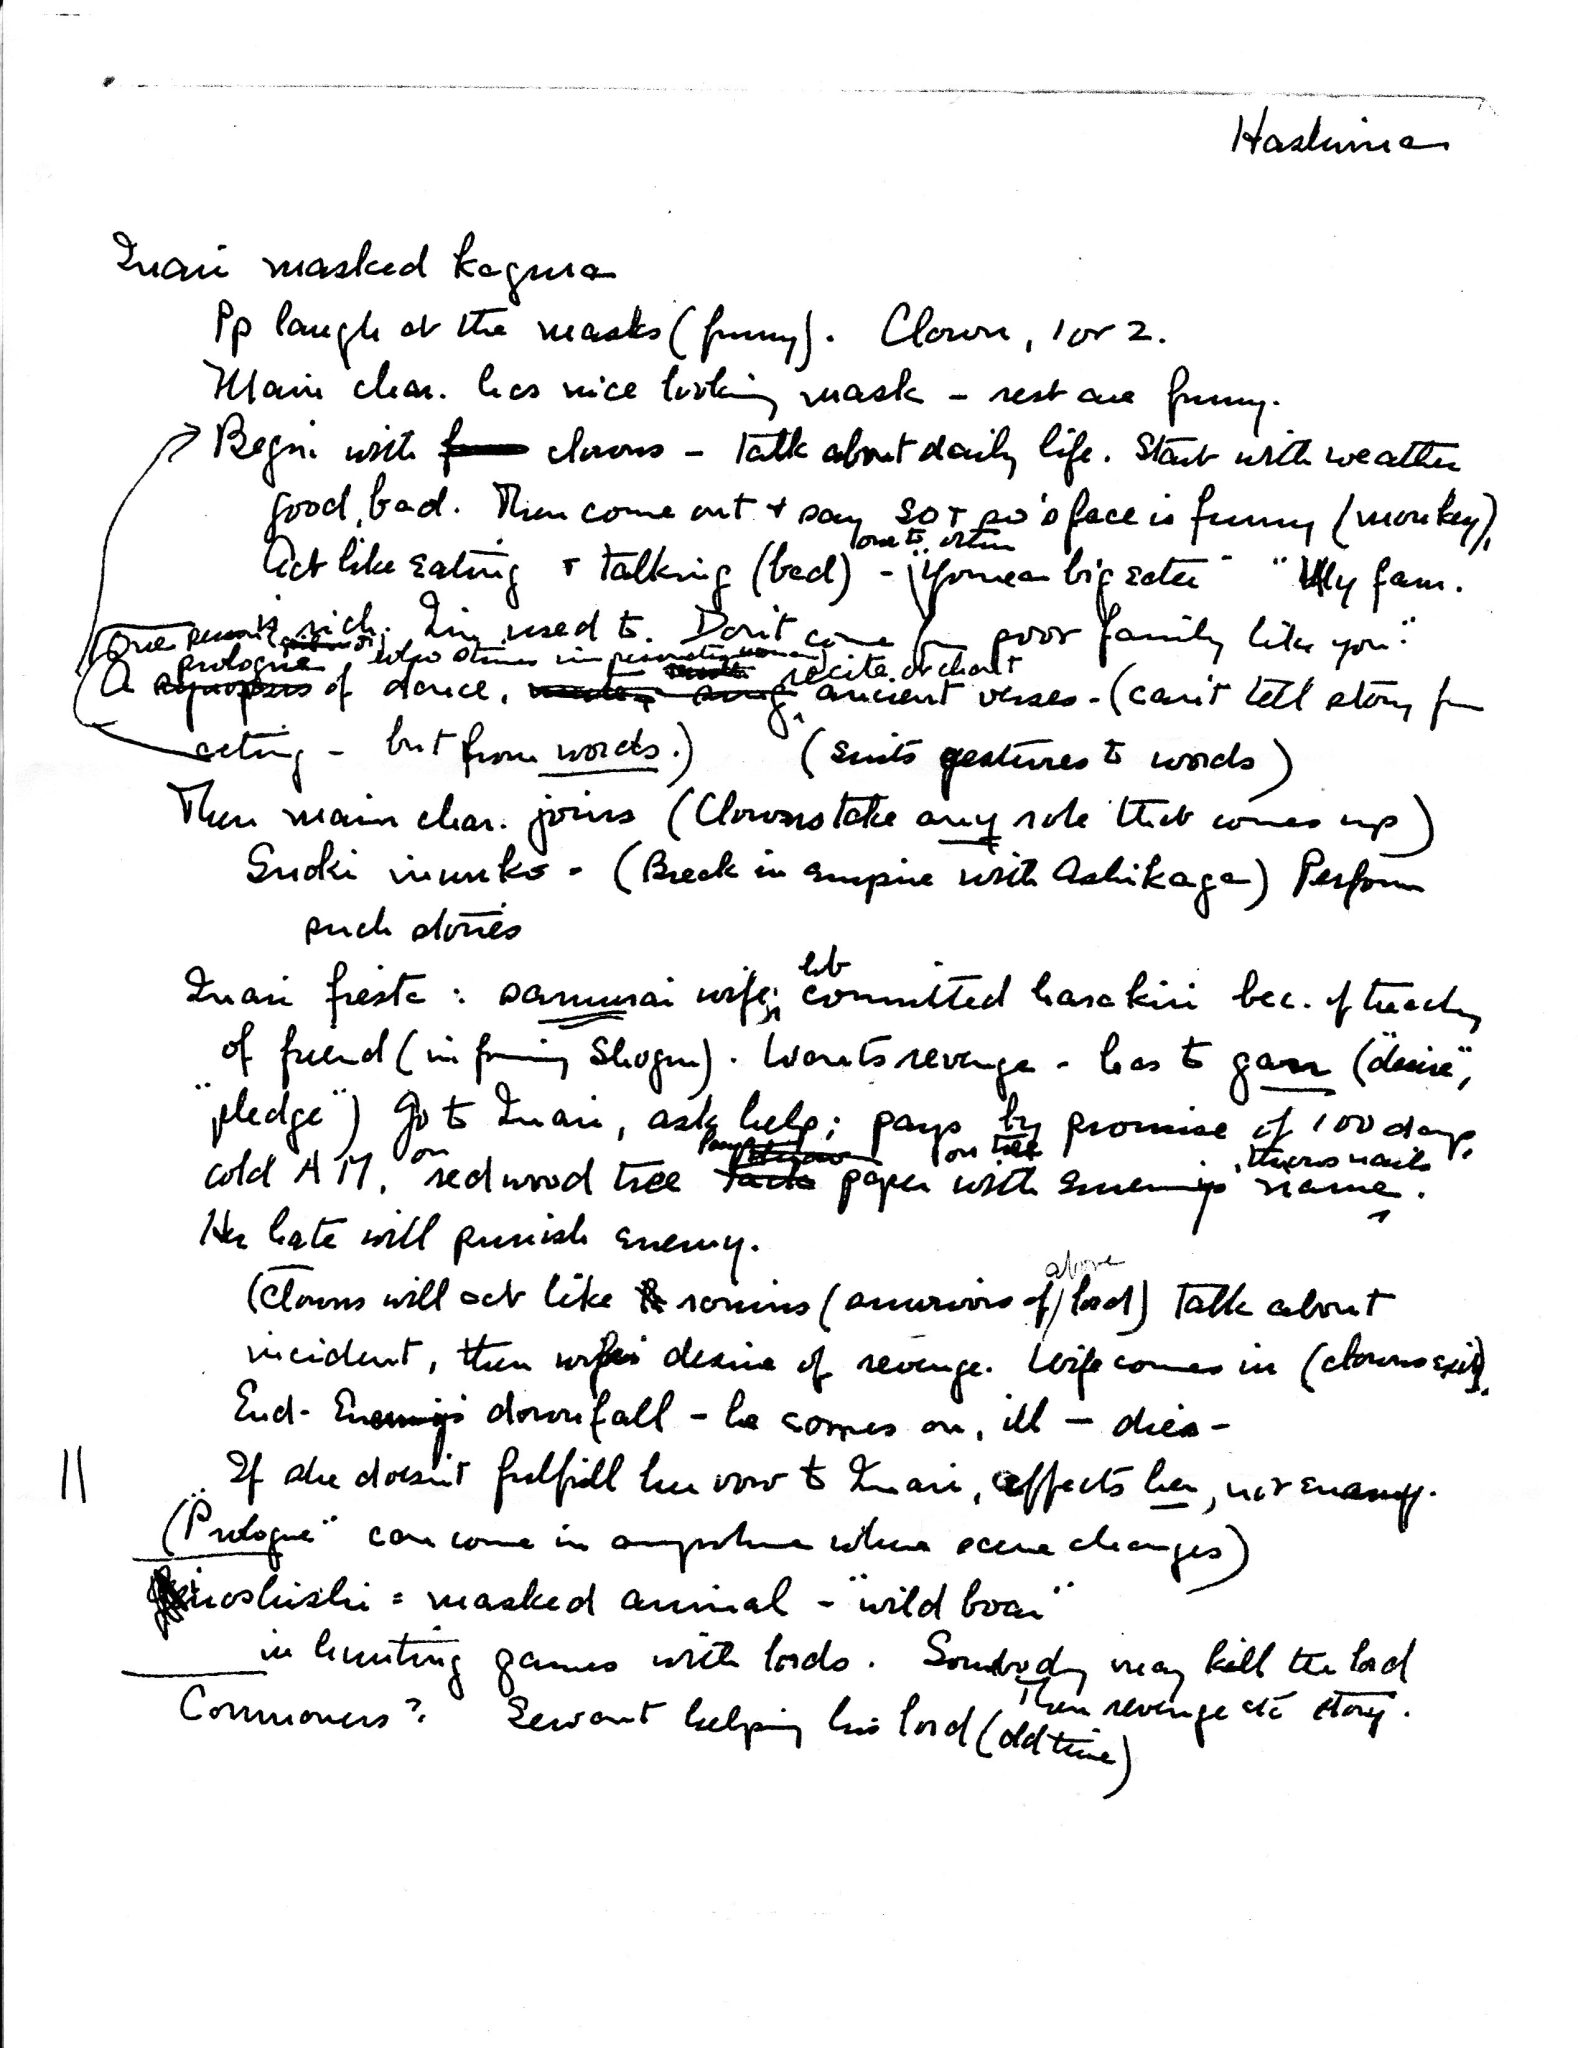 Hashima
Inari masked kagura
Pp laugh at the masks (funny). Clown, 1 or 2.
Main char. has nice looking mask - rest are funny.
Begin with clowns - Talk about daily life. Start with weather
good, bad. Then come out + say so + so's face is funny (monkey),
one to other
Act like eating + talking (bad) - "You're a big eater" "My fam.
is rich. I'm used to. Don't come fm poor family like you."
(One person who stands impersonating woman)
prologue recite or chant
A synopsis of dance, ancient verses - (can't tell story fm
acting - but from words.) (suits gestures to words)
Then main char. joins (Clowns take any role that comes up)
- (Break in empire with Ashikaga) Perform
such stories
Inari fiesta: samurai wife; hb committed harakiri bec. of treachy
of friend (in fming Shogun). Wants revenge - has to gan ("desire",
"pledge") Go to Inari, ask help; pays by promise of 100 days,
on on tree , throws nails
cold AM, redwood tree tacks paper with enemy's name.
Her hate will punish enemy.
above
(Clowns will act like ronins (survivors of lord) Talk about
incident, then wife's desire of revenge. Wife comes in (clowns exit).
End - Enemy's downfall - he comes on, ill - dies -
|| If she doesn't fulfill her vow to Inari, affects her, not enemy.
("Prologue" can come in anywhere where scene changes)
inoshishi = masked animal - "wild boar"
in hunting games with lords. Somebody may kill the lord
Then revenge etc story.
Commoners? Servant helping his lord (old time)